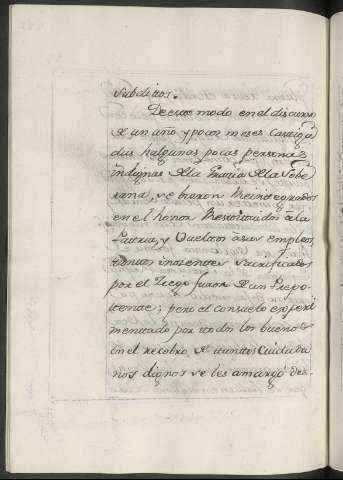 Subdittos.
De este modo en el discurso
de un año y pocos meses Castiga
das halgunas pocas personas
indignas de la Grazia de la Sobe
rana, se bieron Reintegrados
en el honor Restituidos a la
Patria, y Vueltos a sus empleos,
tantos inosentes sacrificados
por el Ziego furor de un Prepo
tente; pero el consuelo experi
mentado por todos los buenos
en el recobro de ttanttos Ciudada
nos dignos se les amargó des-